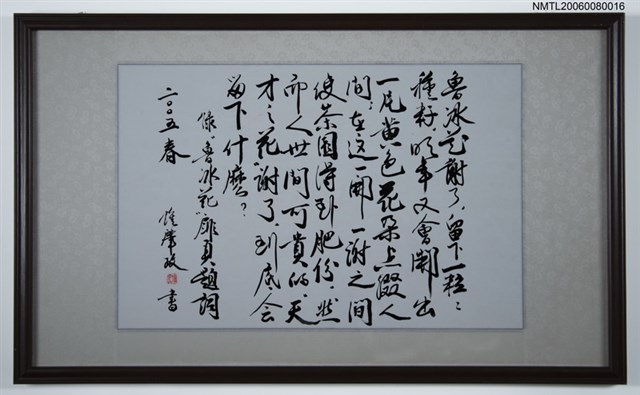 NMTL20060080016
魯冰花謝了，留下一粒粒
種籽，明年又會開出
一片黃色花朵點綴人
間；在這一開一謝之間
使茶園得到肥份。然
而人世間可貴的天
才之花謝了，到底會
留下什麼？
錄「魯冰花」扉頁題詞
二〇〇五春
鍾肇政 書